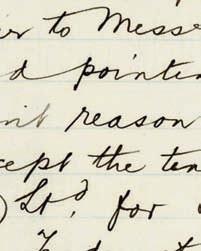 er to Messe
d pointin
int reason
cept the ten
) Ltd. for